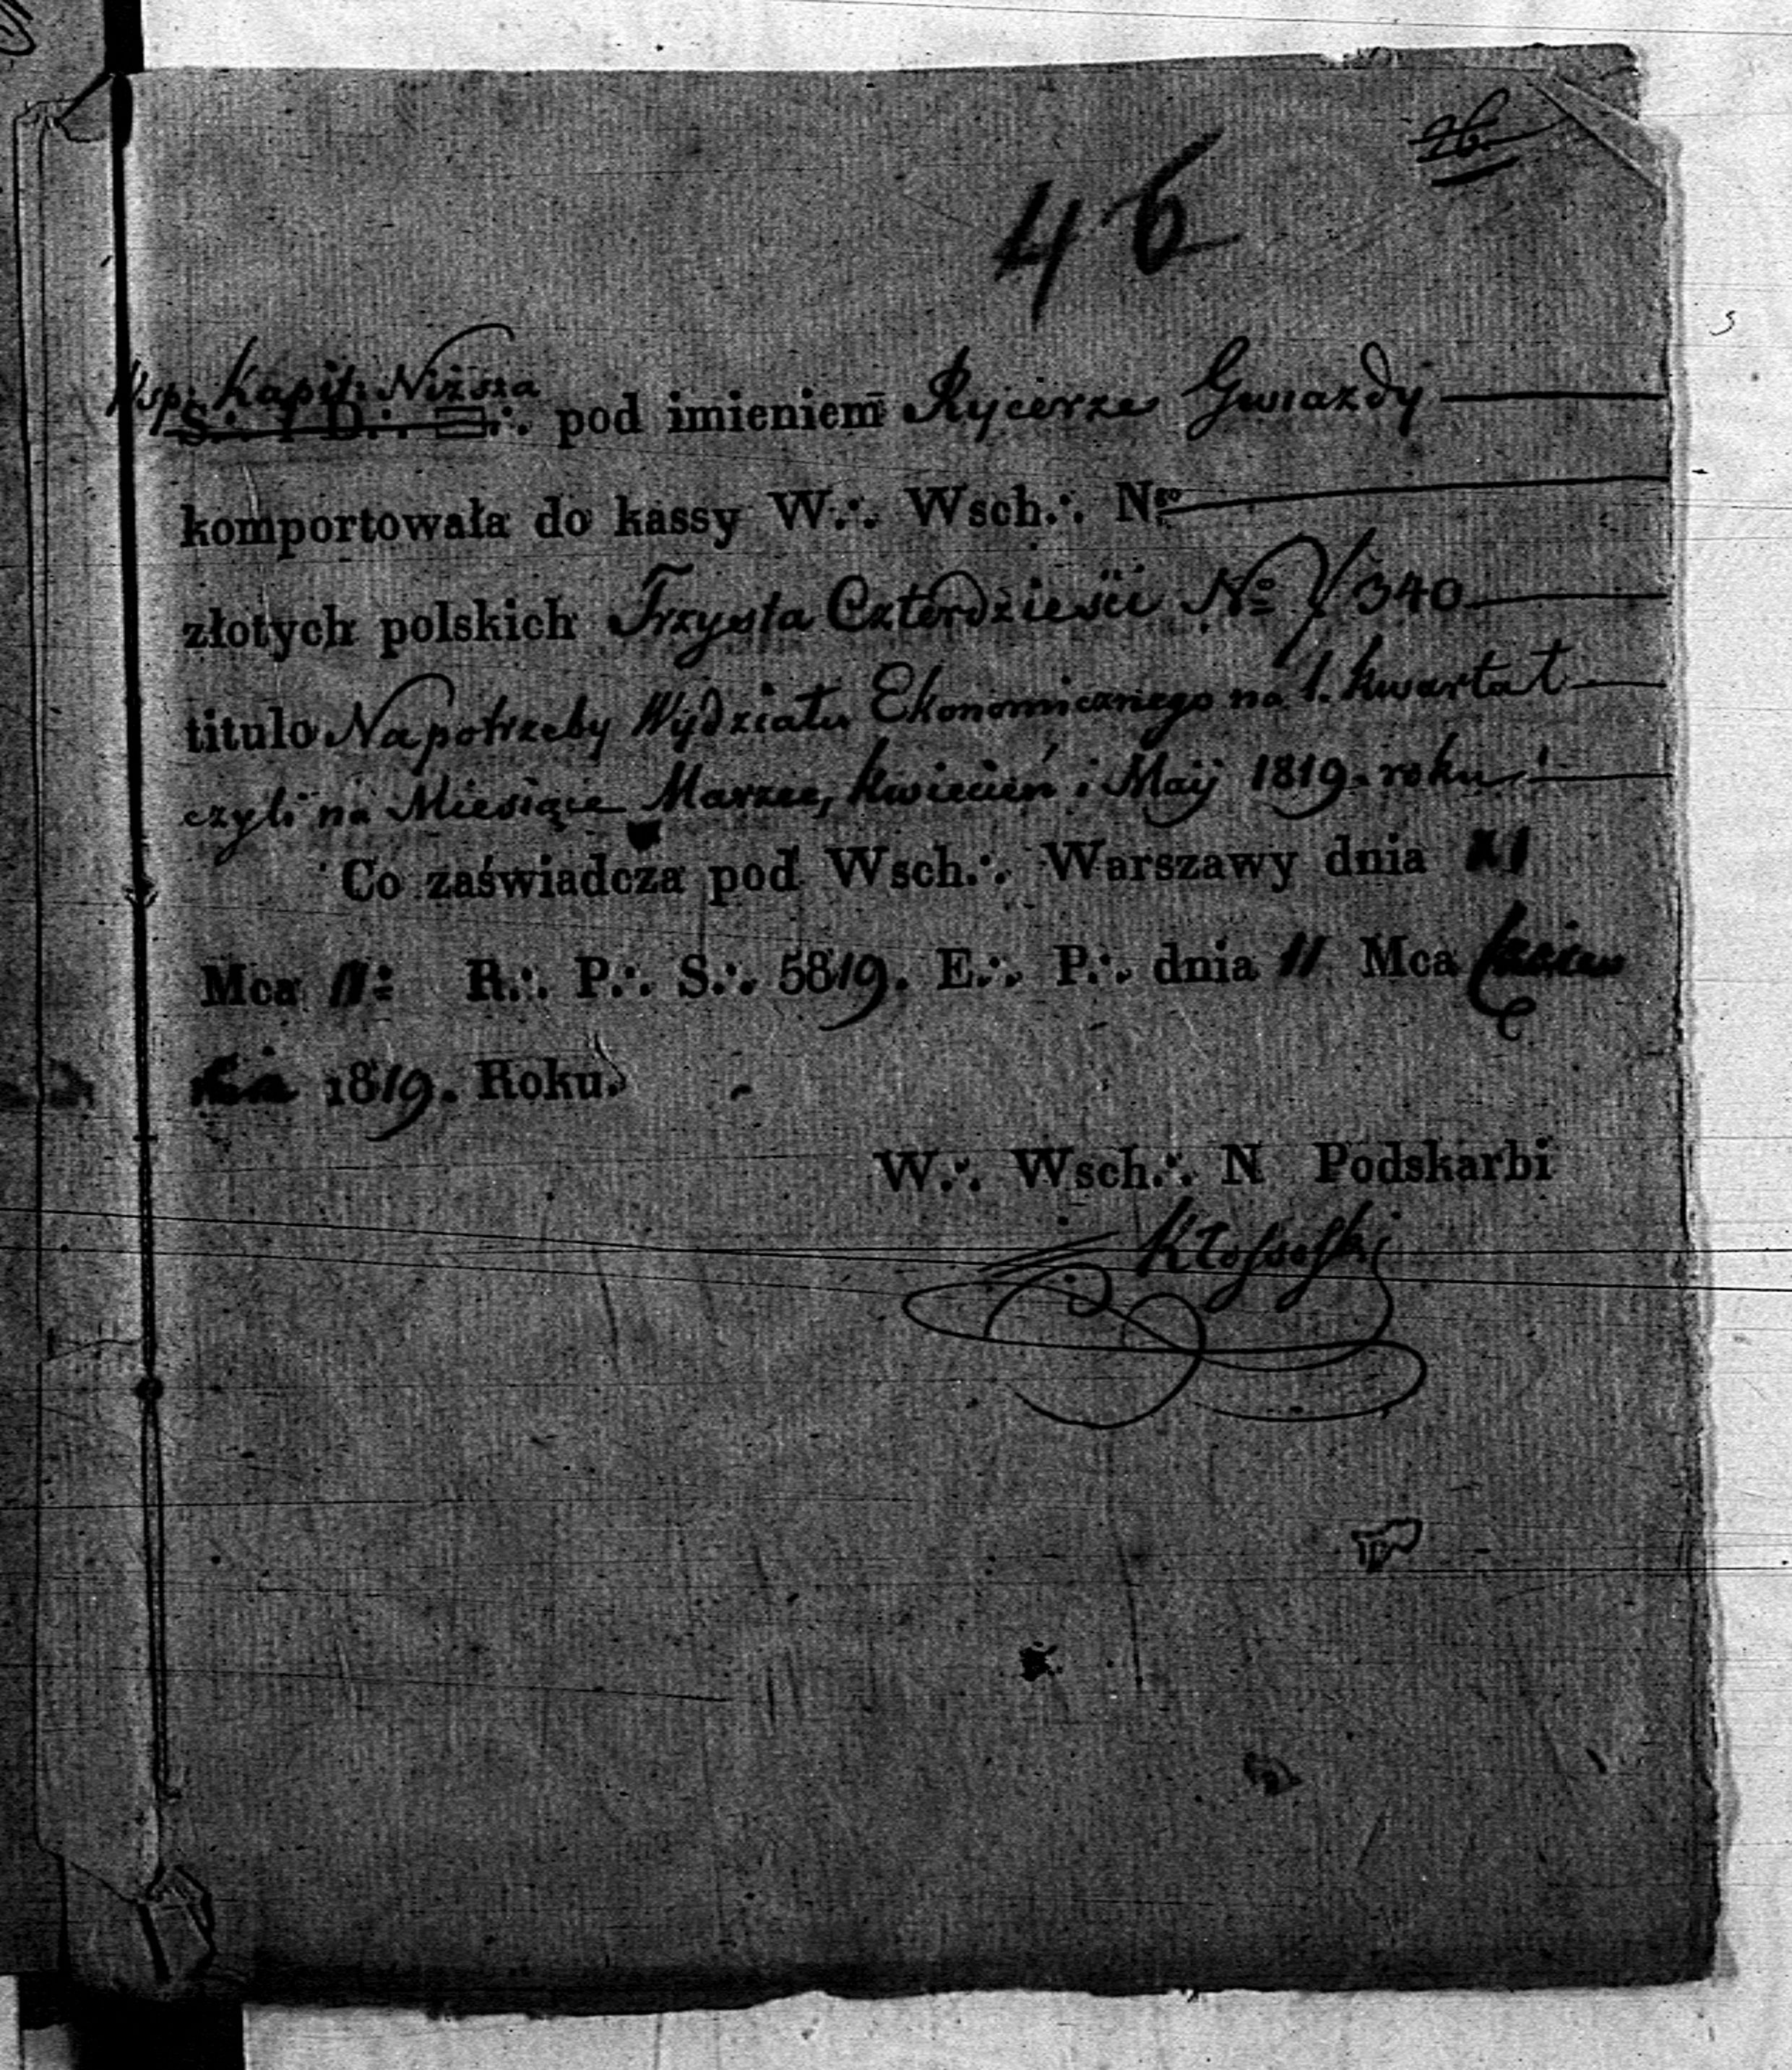 26.
46
Wsp: Kapit: Niższa
S∴ D∴ ▭∴ pod imieniem Rycerze Gwiazdy
komportowała do kassy W∴ Wsch∴ Nro
złotych polskich Trzysta Czterdzieści No 340
titulo Na potrzeby Wydziału Ekonomicznego na 1. kwartał
czyli na Miesiące Marzec, kwiecień i Maij 1819. roku
Co zaświadcza pod Wsch∴ Warszawy dnia XI
Mca II: R∴ P∴ S∴ 5819. E∴ P∴ dnia 11 Mca
1819. Roku.
W∴ Wsch∴ N Podskarbi
Kłossofski